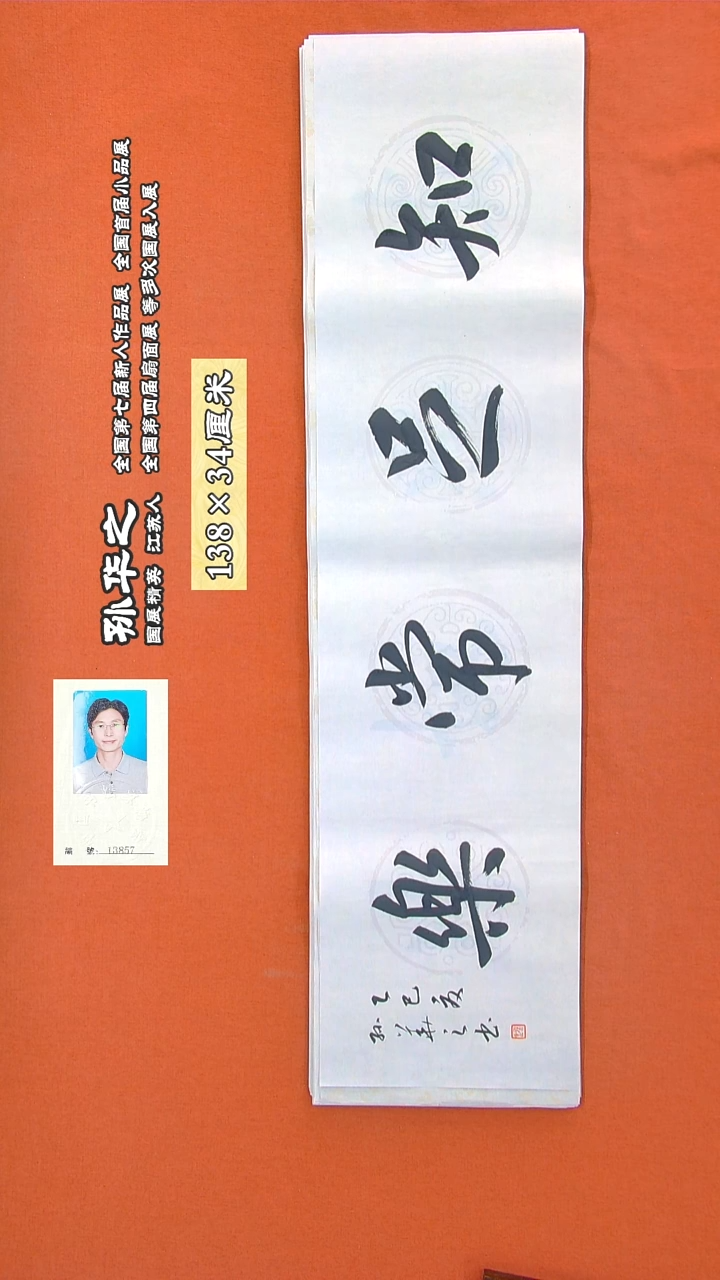 孙华之
国展精英 江苏人
全国第七届新人作品展 全国首届小品展
全国第四届扇面展 等多次国展入展
138×34厘米
編 號: 13857
知足常樂
乙巳夏
孙華之书